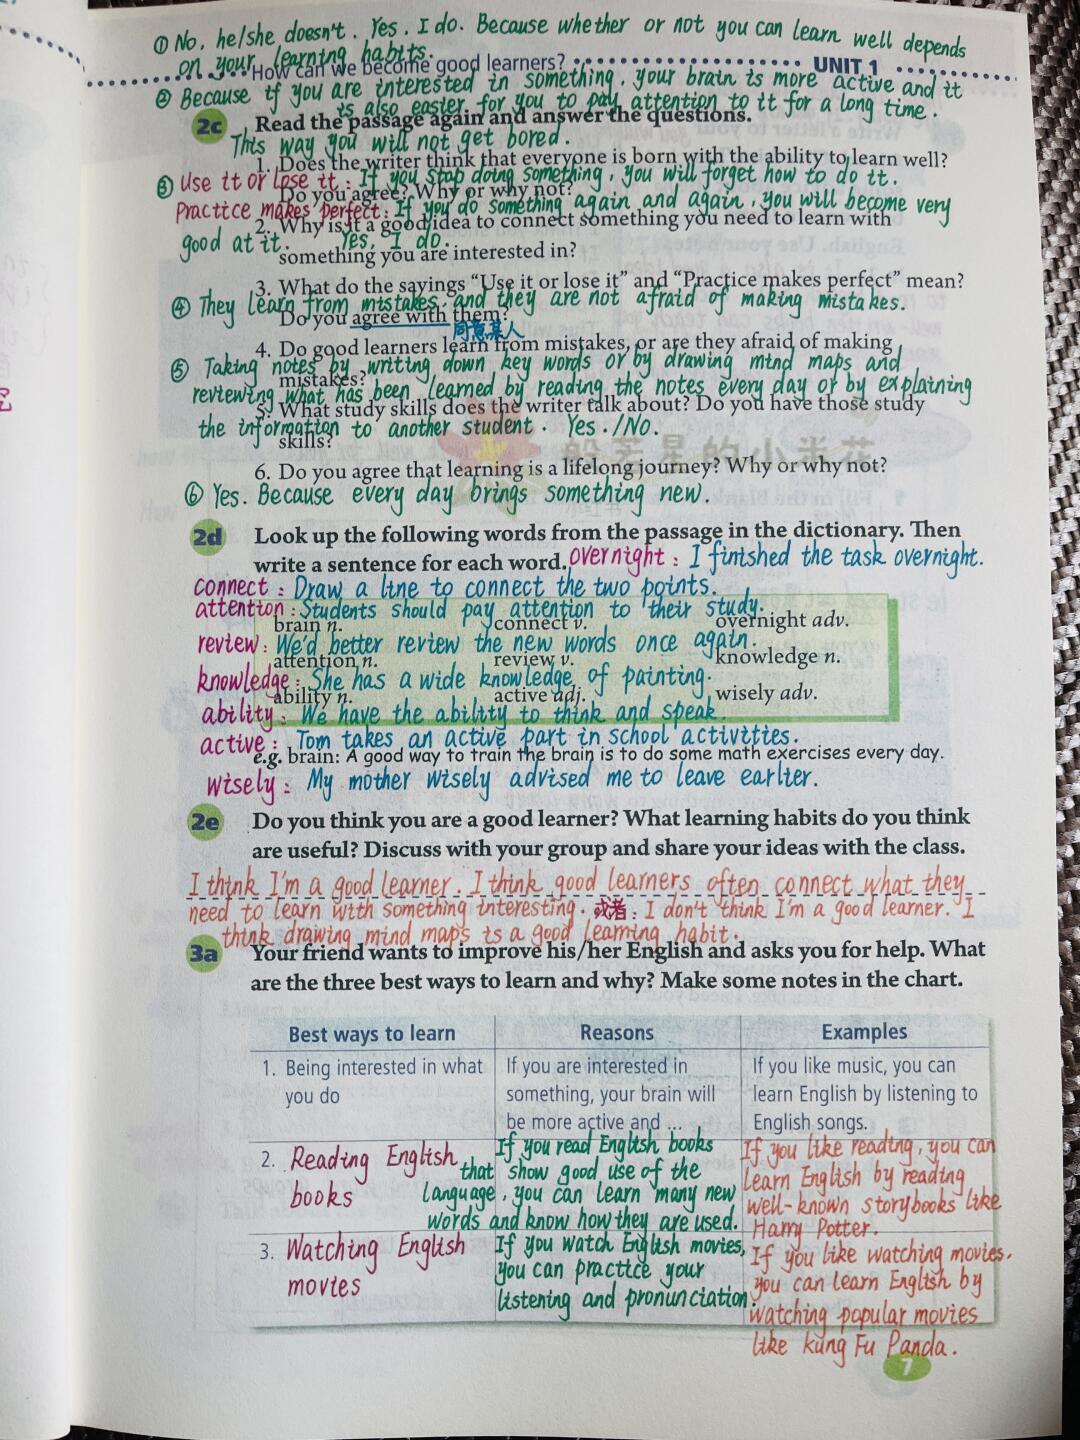 ① No, he/she doesn't. Yes, I do. Because whether or not you can learn well depends
on your learning habits.
How can we become good learners?
UNIT 1
② Because if you are interested in something, your brain is more active and it
is also easier for you to pay attention to it for a long time.
2c Read the passage again and answer the questions.
This way you will not get bored.
1. Does the writer think that everyone is born with the ability to learn well?
③ Use it or lose it: If you stop doing something, you will forget how to do it.
Do you agree? Why or why not?
Practice makes perfect: If you do something again and again, you will become very
2. Why is it a good idea to connect something you need to learn with
good at it. Yes, I do.
something you are interested in?
3. What do the sayings “Use it or lose it” and “Practice makes perfect” mean?
④ They learn from mistakes, and they are not afraid of making mistakes.
Do you agree with them?
同意某人
4. Do good learners learn from mistakes, or are they afraid of making
⑤ Taking notes by writing down key words or by drawing mind maps and
mistakes?
reviewing what has been learned by reading the notes every day or by explaining
5. What study skills does the writer talk about? Do you have those study
the information to another student. Yes./No.
skills?
般若星的小米花
6. Do you agree that learning is a lifelong journey? Why or why not?
⑥ Yes. Because every day brings something new.
2d Look up the following words from the passage in the dictionary. Then
write a sentence for each word. overnight: I finished the task overnight.
connect: Draw a line to connect the two points.
attention: Students should pay attention to their study.
brain n. connect v. overnight adv.
review: We'd better review the new words once again.
attention n. review v. knowledge n.
knowledge: She has a wide knowledge of painting.
ability n. active adj. wisely adv.
ability: We have the ability to think and speak.
active: Tom takes an active part in school activities.
e.g. brain: A good way to train the brain is to do some math exercises every day.
wisely: My mother wisely advised me to leave earlier.
2e Do you think you are a good learner? What learning habits do you think
are useful? Discuss with your group and share your ideas with the class.
I think I'm a good learner. I think good learners often connect what they
need to learn with something interesting. 或者: I don't think I'm a good learner. I
think drawing mind maps is a good learning habit.
3a Your friend wants to improve his/her English and asks you for help. What
are the three best ways to learn and why? Make some notes in the chart.
Best ways to learn Reasons Examples
1. Being interested in what If you are interested in If you like music, you can
you do something, your brain will learn English by listening to
be more active and ... English songs.
2. Reading English If you read English books If you like reading, you can
books that show good use of the learn English by reading
language, you can learn many new well-known storybooks like
words and know how they are used. Harry Potter.
3. Watching English If you watch English movies, If you like watching movies,
movies you can practice your you can learn English by
listening and pronunciation. watching popular movies
like Kung Fu Panda.
7